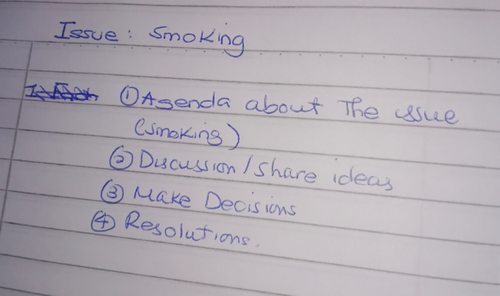 Issue: Smoking
① Agenda about The issue
(smoking)
② Discussion/share ideas
③ Make Decisions
④ Resolutions.